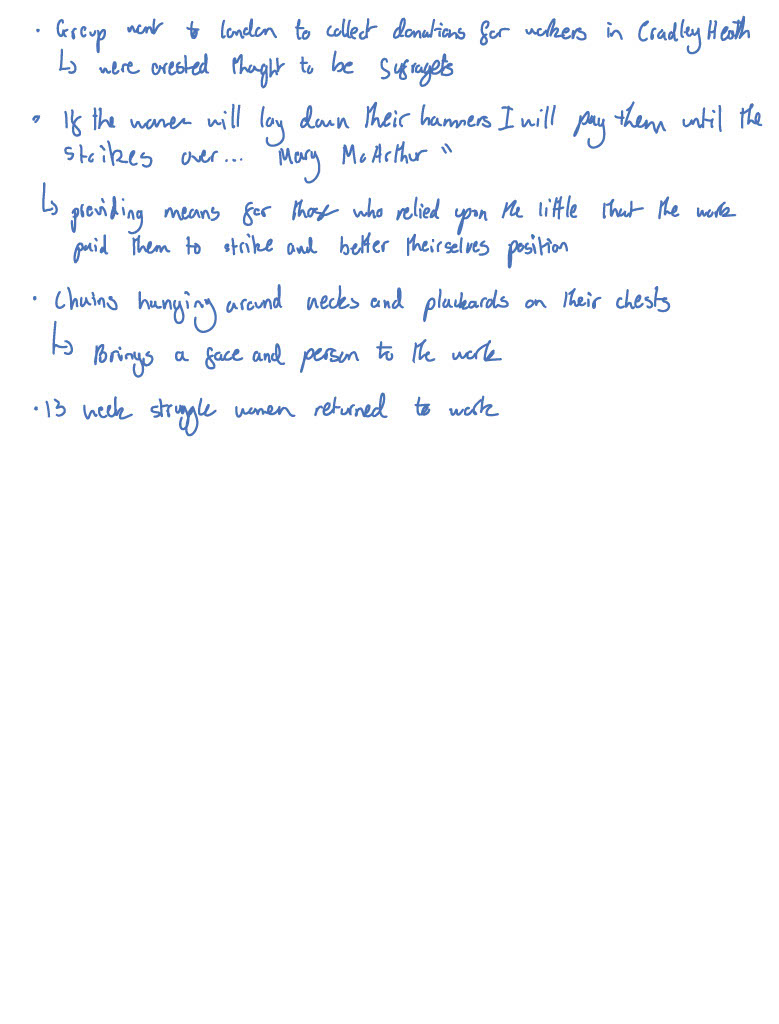 · Group went to london to collect donations for workers in Cradley Heath
↳ were arested thought to be Sufragets
" If the women will lay down their hammers I will pay them until the
strikes over... Mary McArthur "
↳ providing means for those who relied upon the little that the work
paid them to strike and better theirselves position
· Chains hanging around necks and plackards on their chests
↳ Brings a face and person to the work
· 13 week struggle women returned to work